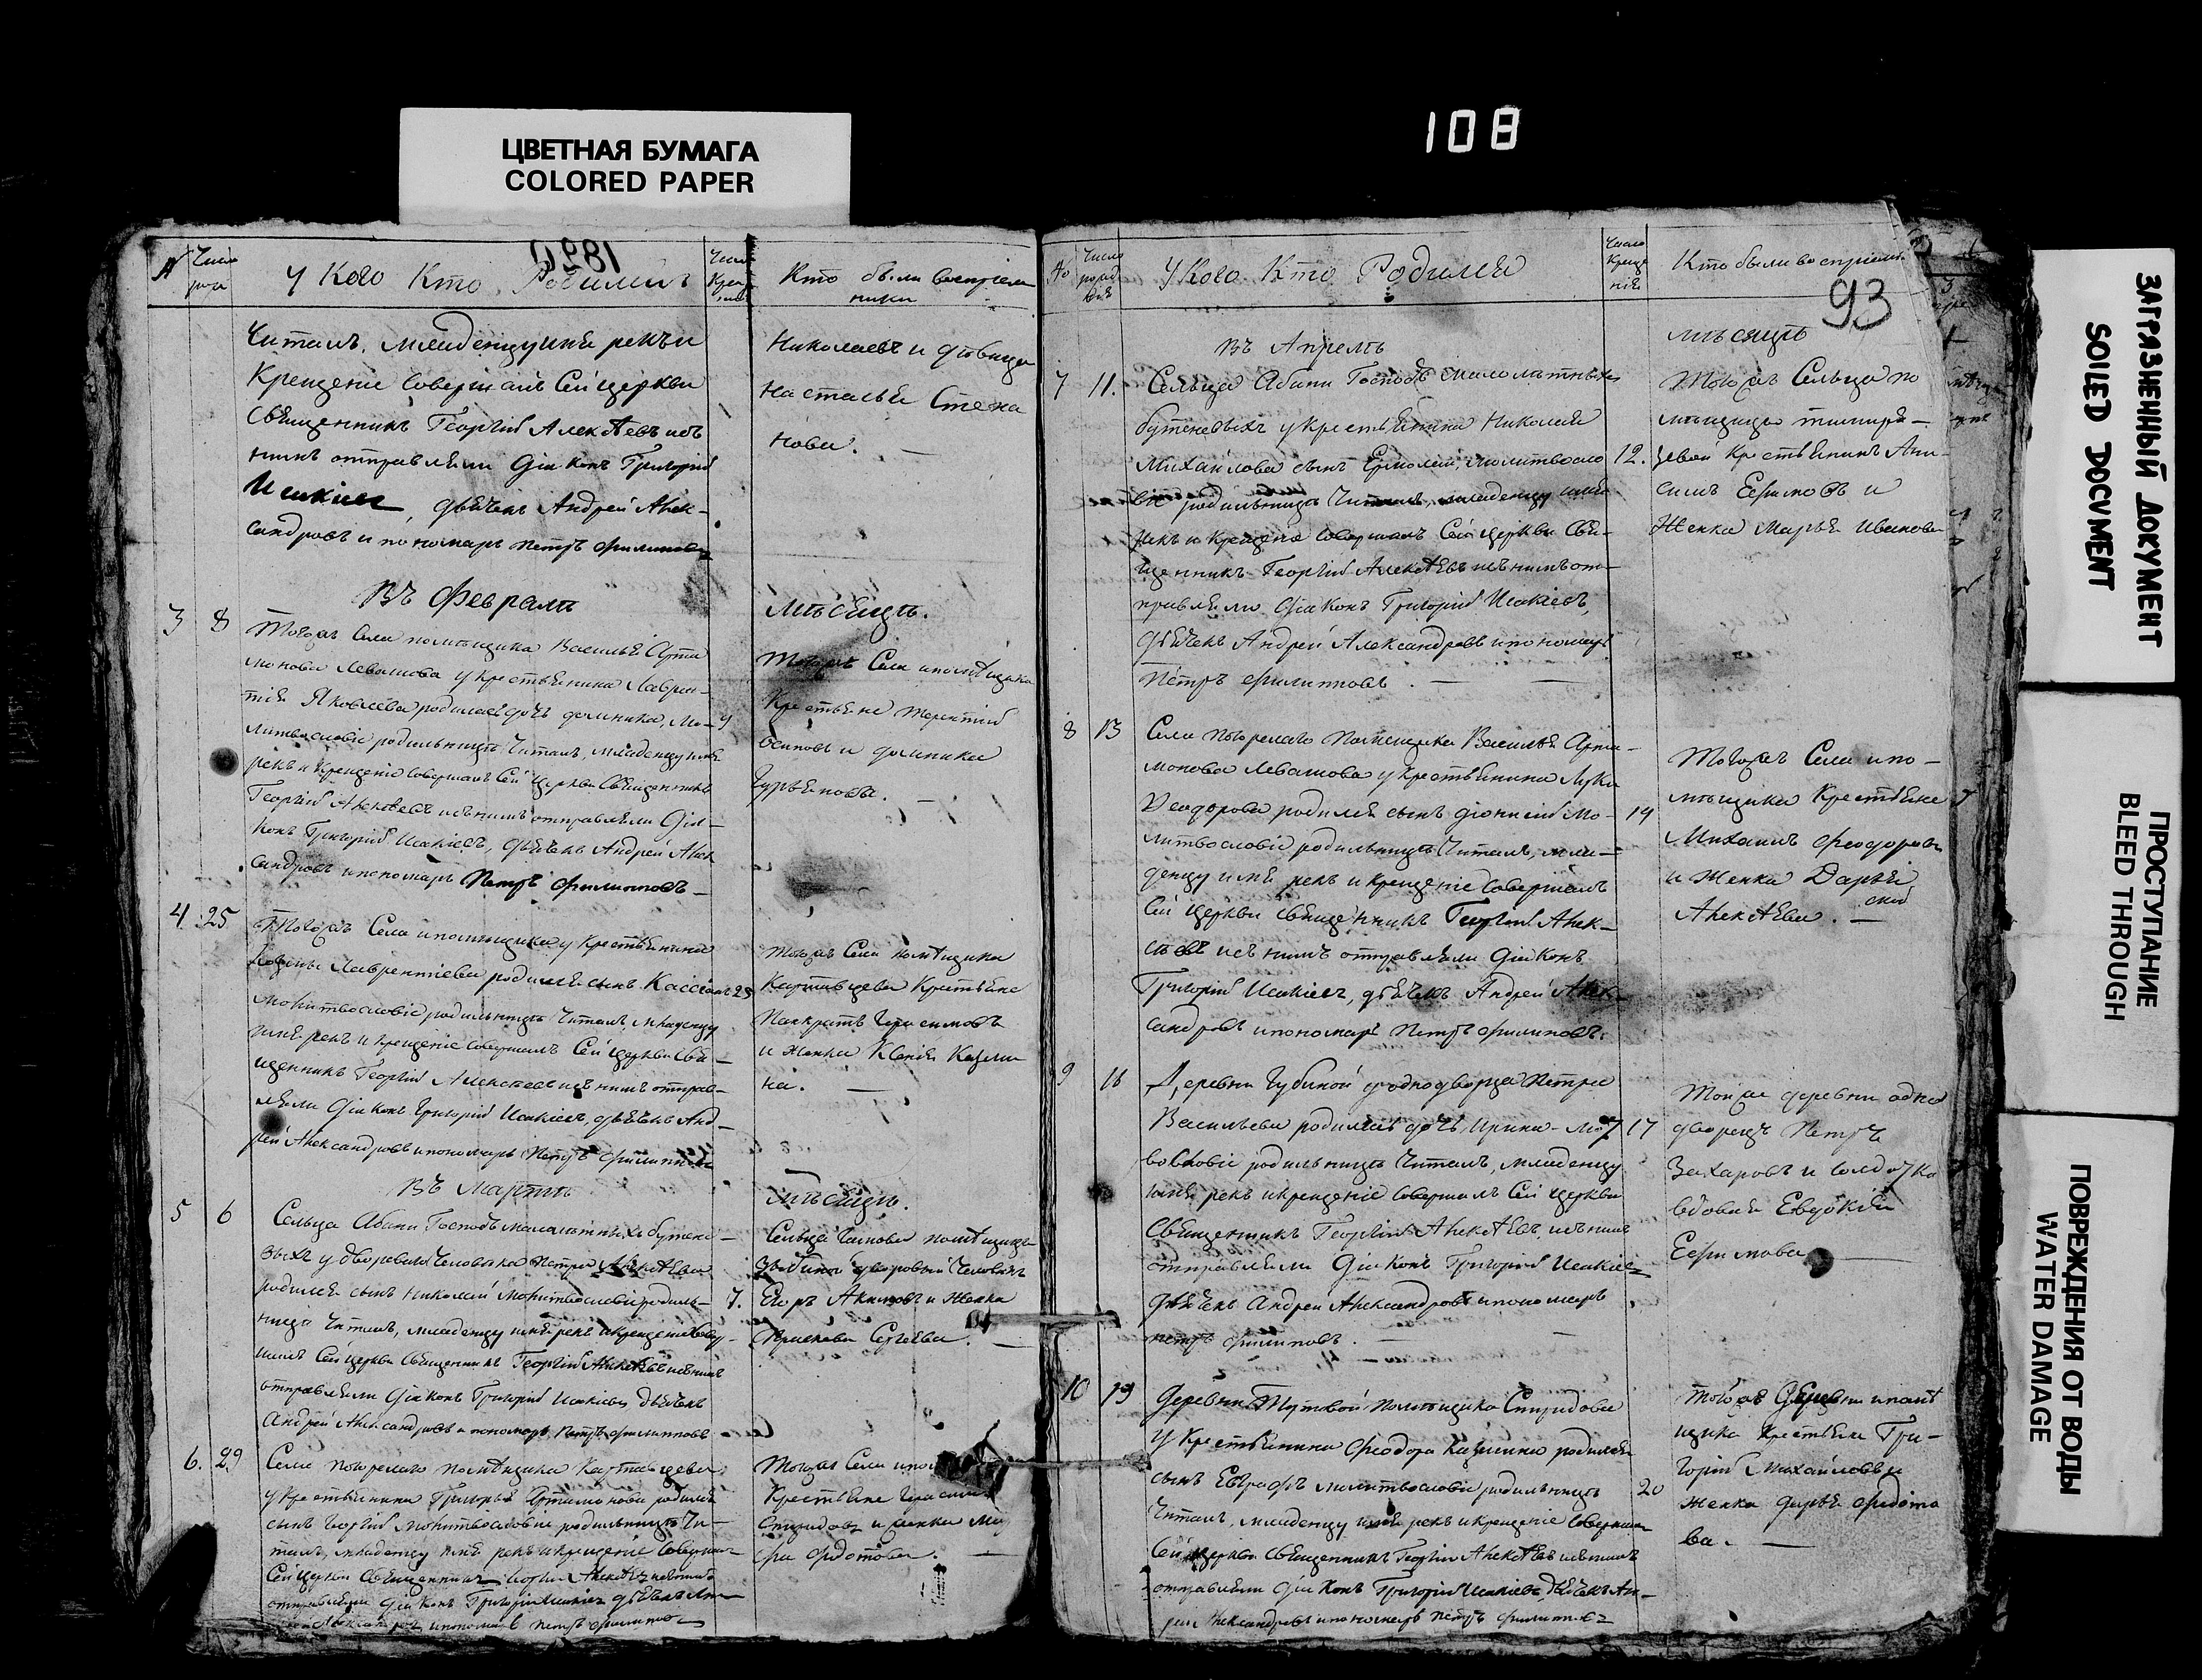 ЦВЕТНАЯ БУМАГА
COLORED PAPER
108
1820
№
Число
У Кого Кто Родился
Число
Крещ
Кто были восприем
ники
читалъ, младенцу имя рекъ и
Крещеніе Совершалъ Сей церкви
Священникъ Георгій Алексѣевъ и съ
нимъ отправляли Діаконъ Григорій
Исакіев, дьячекъ Андрей Алек-
сандровъ и пономарь Петръ Филипповъ
Николаевъ и девица
Наталья Степа
нова.
Въ Февралѣ
Мѣсяцѣ.
3 8
Тогожъ Села помѣщика Василья Арта
монова Левашова у крестьянина Лаврен-
тія Яковлева родилась дочь Домника, Мо-
литвословіе родильницѣ Читалъ, младенцу имя
рекъ и Крещеніе Совершалъ Сей Церкви Священникъ
Георгій Алексѣевъ и съ нимъ отправляли Діа-
конъ Григорій Исакіевъ, дьячекъ Андрей Алек
сандровъ и пономарь Петръ Филипповъ
9
Тогожъ Села и помѣщика
Крестьяне Терентій
Осиповъ и Домника
Гурьянова.
4 25
Тогожъ Села и помѣщика у Крестьянина
Козмы Лаврентіева родился сынъ Кассіанъ
Молитвословіе родильницѣ Читалъ, младенцу
имя рекъ и Крещеніе Совершалъ Сей Церкви Свя-
щенникъ Георгій Алексѣевъ и съ нимъ отправ-
ляли Діаконъ Григорій Исакіевъ, дьячекъ Анд-
рей Александровъ и пономарь Петръ Филипповъ
25
Тогожъ Села помѣщика
Картавцева Крестьяне
Панкратъ Герасимовъ
и Женка Ксенія Казми
на.
Въ Мартѣ
Мѣсяцѣ.
5 6
Сельца Абани Господъ малолѣтныхъ Бутене-
выхъ у двороваго Человѣка Петра Алексѣева
родился сынъ Николай Молитвословіе родиль-
ницѣ Читалъ, младенцу имя рекъ и крещеніе Совер-
шалъ Сей Церкви Священникъ Георгій Алексѣевъ и съ нимъ
отправляли Діаконъ Григорій Исакіевъ дьячекъ
Андрей Александровъ и пономарь Петръ Филипповъ
7.
Сельца помѣщицы
дворовый Человѣкъ
Егоръ Акимовъ и Женка
Сергѣева.
6. 29
Села Погорелаго помѣщика Картавцева
у крестьянина Григорья Артамонова родился
сынъ Георгій Молитвословіе родильницѣ Чи-
талъ, младенцу имя рекъ и крещеніе Совершалъ
Сей Церкви Священникъ Георгій Алексѣевъ и съ нимъ
отправляли Діаконъ Григорій Исакіевъ дьячекъ Ан-
дрей Александровъ и пономарь Петръ Филиппов
Тогожъ Села и
Крестьяне Герасимъ
Спиридовъ и Женка Мар
фа Федотова.
№
Число
рожд
нія
У Кого Кто Родился
Число
Креще
нія
Кто были восприем
93
Въ Апрелѣ
мѣсяцѣ
7 11.
Сельца Абани Господъ Малолѣтныхъ
Бутеневыхъ у крестьянина Николая
Михайлова сынъ Ермолай, молитвосло
віе родильницѣ Читалъ, младенцу имя
рекъ и крещеніе Совершалъ Сей Церкви Свя-
щенникъ Георгій Алексѣевъ и съ нимъ от-
правляли Діаконъ Григорій Исакіевъ,
дьячекъ Андрей Александровъ и пономарь
Петръ Филипповъ.
12.
Тогожъ Сельца по
мѣщицы Тимиря-
зевой Крестьянинъ Ани-
симъ Ефимовъ и
Женка Марья Иванова
8 13
Села Погорелаго Помещика Василья Арта-
монова Левашова у крестьянина Луки
Ѳеодорова родился сынъ Діонисій Мо-
литвословіе родильницѣ Читалъ, мла-
денцу имя рекъ и крещеніе Совершалъ
Сей Церкви Священникъ Георгій Алек-
сѣевъ и съ нимъ отправляли Діаконъ
Григорій Исакіевъ, дьячекъ Андрей Алек-
сандровъ и пономарь Петръ Филиповъ.
14
Тогожъ Села и по-
мѣщика Крестьяне
Михаилъ Феодоровъ
и Женка Дарья
Алексѣева.
9 16
Деревни Губиной у однодворца Петра
Васильева родилась дочь Ирина - Молит
вословіе родильницѣ Читалъ, младенцу
имя рекъ и крещеніе Совершалъ Сей Церкви
Священникъ Георгій Алексѣевъ, и съ нимъ
отправляли Діаконъ Григорій Исакіевъ
дьячекъ Андрей Александровъ и пономарь
Петръ Филиповъ.
17
Тойже деревни одно
дворецъ Петръ
Захаровъ и солдатка
вдовая Евдокія
Ефимова
10 19
Деревни помѣщика Спиридова
у Крестьянина Феодора Казмина родился
сынъ Евграфъ молитвословіе родильницѣ
Читалъ, младенцу имя рекъ и крещеніе Совершалъ
Сей Церкви Священникъ Георгій Алексѣевъ и съ нимъ
отправляли Діаконъ Григорій Исакіевъ, дьячекъ Ан-
дрей Александровъ и пономарь Петръ Филипов
20
Тойже Деревни и помѣ
щика Крестьяне Гри-
горій Михайловъ и
женка Дарья Федото
ва.
ЗАГРЯЗНЕННЫЙ ДОКУМЕНТ
SOILED DOCUMENT
ПРОСТУПАНИЕ
BLEED THROUGH
ПОВРЕЖДЕНИЯ ОТ ВОДЫ
WATER DAMAGE